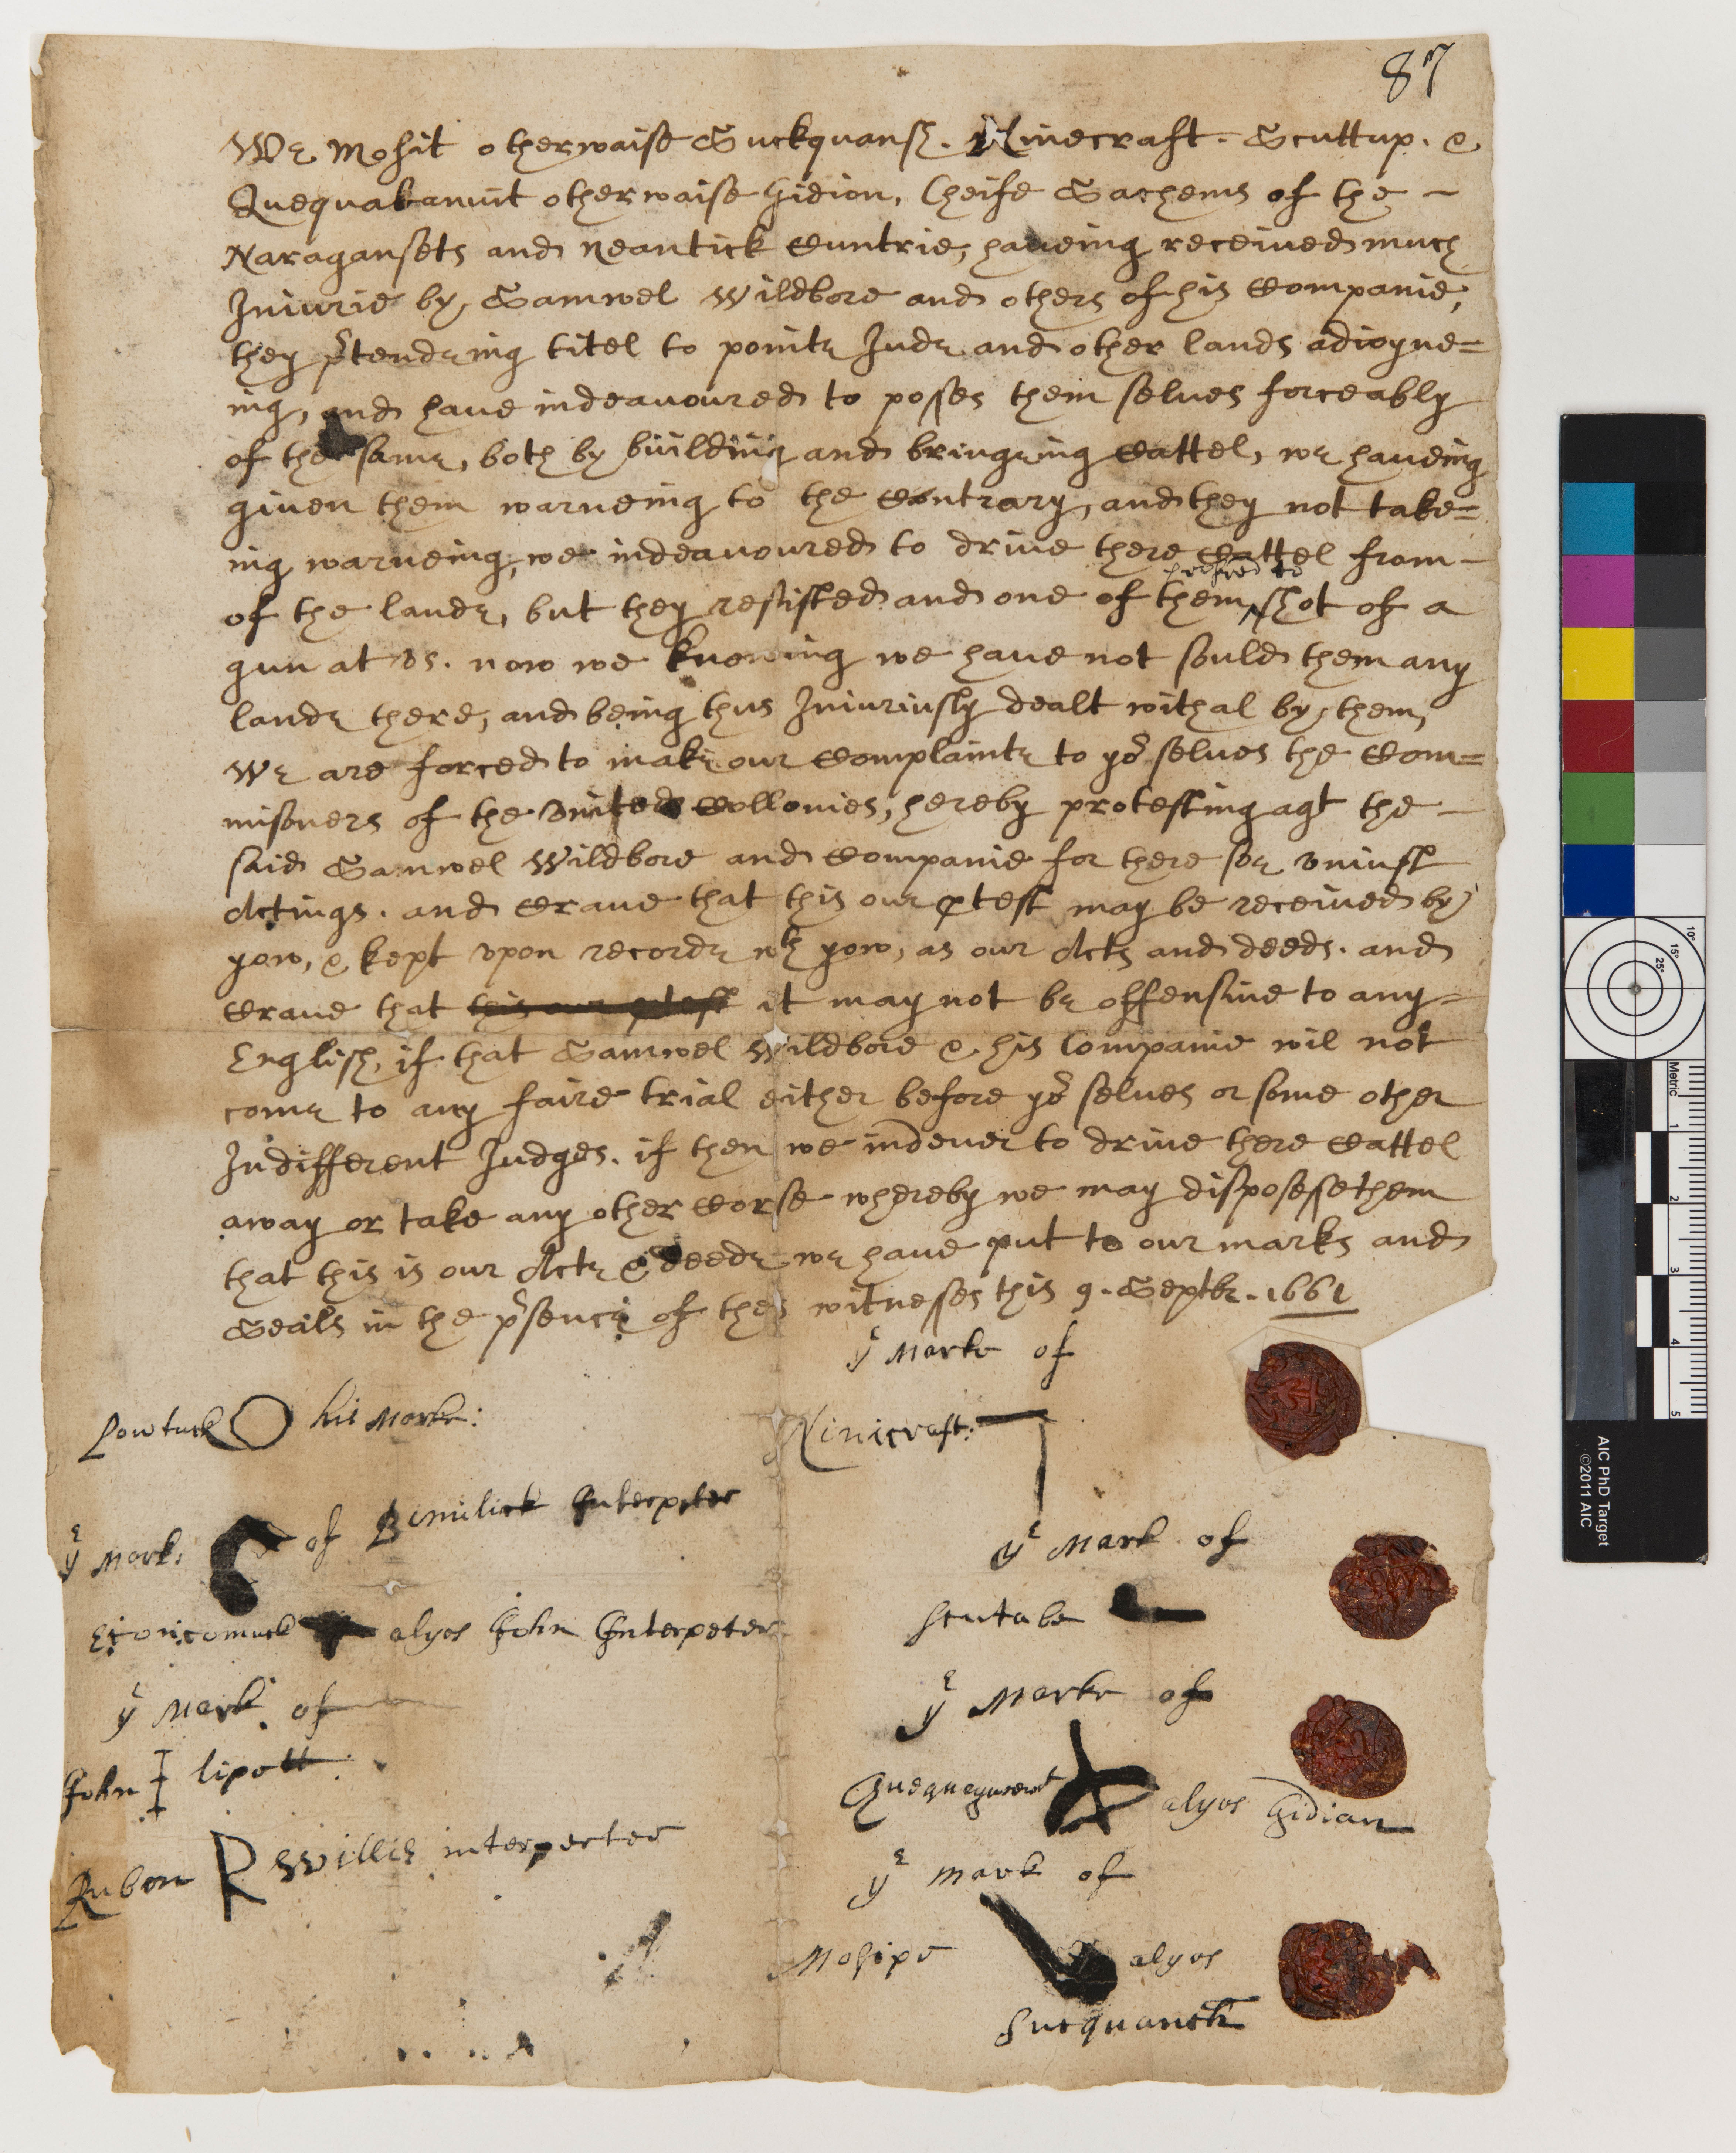 87
We Mohit otherwaise Suckquansh. Ninecraft. Scuttup. &
Quequakanuit otherwaise Gidion, Cheife Sachems of the
Naragansets and Neantick Cuntrie, haveing received much
Iniurie by Samwel Wildbore and others of his Companie,
they prtendeing titel to pointe Jude and other lands adioyne=
ing, and have indeavoured to posses them selves forceably
of the same, both by building and bringeing Cattel, we haveing
given them warneing to the Contrary, and they not take=
ing warneing, we indeavoured to drive there Cattel from
of the lande, but they resisted and one of them profred to shot of a
gun at vs. now we knowing we have not sould them any
lande there, and being thus Iniuriusly dealt withal by them,
We are forced to make our Complainte to yor selves the Com=
misoners of the vnited Collonies, hereby protesting agt the
said Samwel Wildbore and Companie for there soe vniust
Actings. and Crave that this our ptest may be received by
yow, & kept vpon recorde wth yow, as our Acts and deeds. and
Crave that this our ptest it may not be offensive to any
English, if that Samwel Wildbore & his Companie wil not
come to any faire trial either before yor selves or some other
Indifferent Judges. if then we indever to drive there Cattel
away or take any other Corse whereby we may disposesse them
that this is our Acte & deede we have put to our marks and
Seals in the prsence of thes witnesses this 9. Septbr. 1661
ye Marke of
Powtuck his Marke:
Ninicraft:
ye Mark: of Bemilick Interpeter
ye Mark of
Scutabe
alyas John Interpeter
ye Mark of
ye Marke of
John lipott
alyas Gidian
Ruben R Willis interperter
ye mark of
Mosipe alyas
Sucquanch